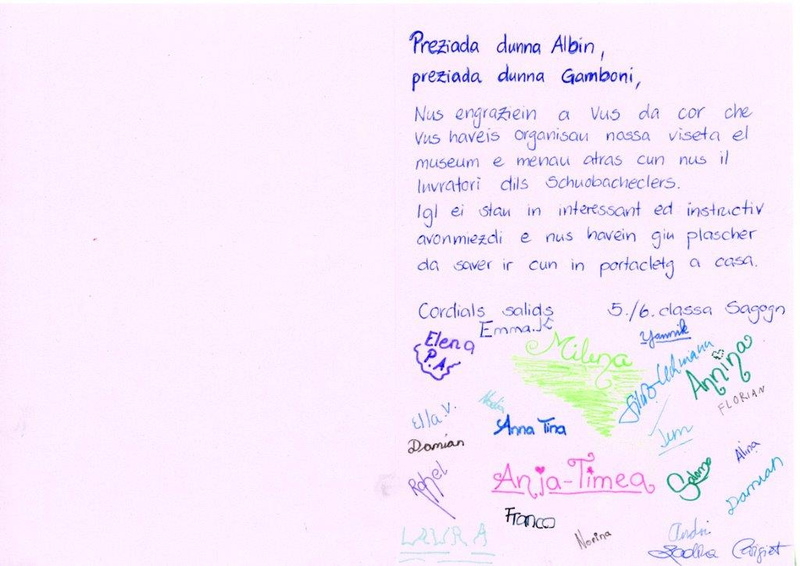 Preziada dunna Albin,
preziada dunna Gamboni,
Nus engraziein a Vus da cor che
Vus haveis organisau nossa viseta el
museum e menau atras cun nus il
luvratori dils Schuobacheclers.
Igl ei stau in interessant ed instructiv
avonmiezdi e nus havein giu plascher
da saver ir cun in portacletg a casa.
Cordials salids 5./6. classa Sagogn
Emma.K
Yannik
Elena
P.A
Milena
Annina
FLORIAN
Ella.V.
Anna Tina
Damian
Alina
Anja-Timea
Damian
Franco
Norina
LAURA
Andri